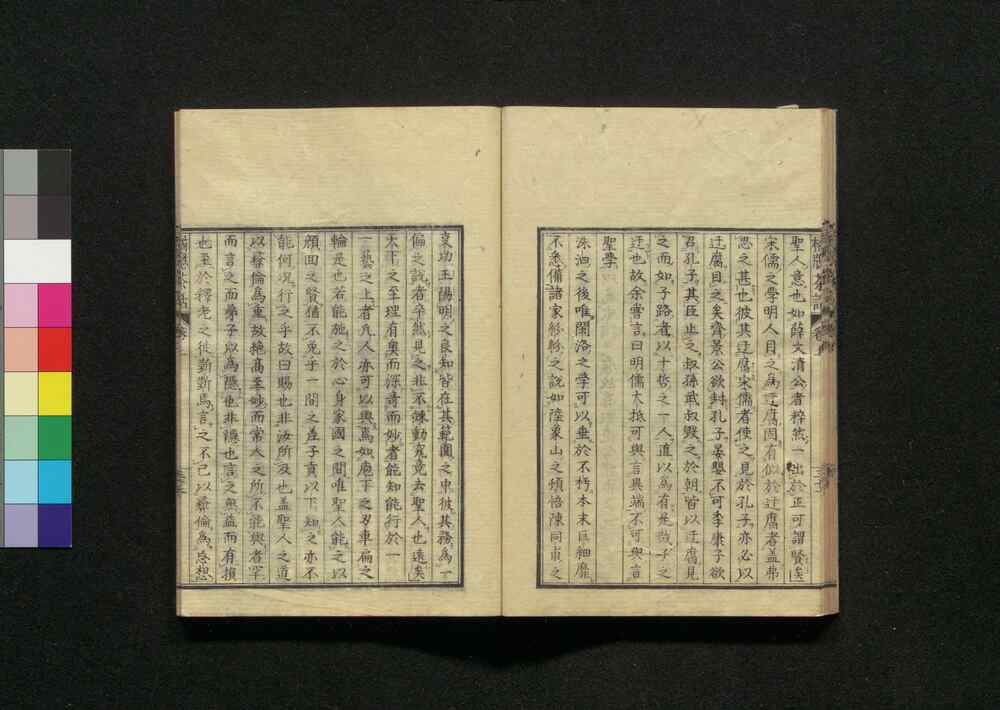 聖人意也如薛文清公者粹然一出於正可謂賢矣
宋儒之學明人目之為迂腐固有似於迂腐者蓋弗
思之甚也彼其迂腐宋儒者使之見於孔子亦必以
迂腐目之矣齊景公欲封孔子晏嬰不可季康子欲
召孔子其臣止之叔孫武叔毀之於朝皆以迂腐見
之而如子路者以十哲之一人直以為有是哉子之
迂也故余嘗言曰明儒大抵可與言異端不可與言
聖學
洙泗之後唯關洛之學可以垂於不朽本末巨細靡
不悉備諸家紛紛之說如陸象山之頓悟陳同甫之
事功王陽明之良知皆在其範圍之中彼其務為一
偏之說者卒然見之非不竦動究竟去聖人也遠矣
天下之至理有奧而深奇而妙者能知能行於一
一藝之上者凡人亦可以與焉如庖丁之刃車扁之
輪是也若能施之於心身家國之間唯聖人能之以
顏回之賢猶不免乎一間之差子貢以下知之亦不
能何況行之乎故曰賜也非汝所及也蓋聖人之道
以彝倫為重故絕高至妙而常人之所不能與者罕
而言之而弟子以為隱也非隱也言之無益而有損
也至於釋老之徒斷斷焉言之不已以彝倫為忘想